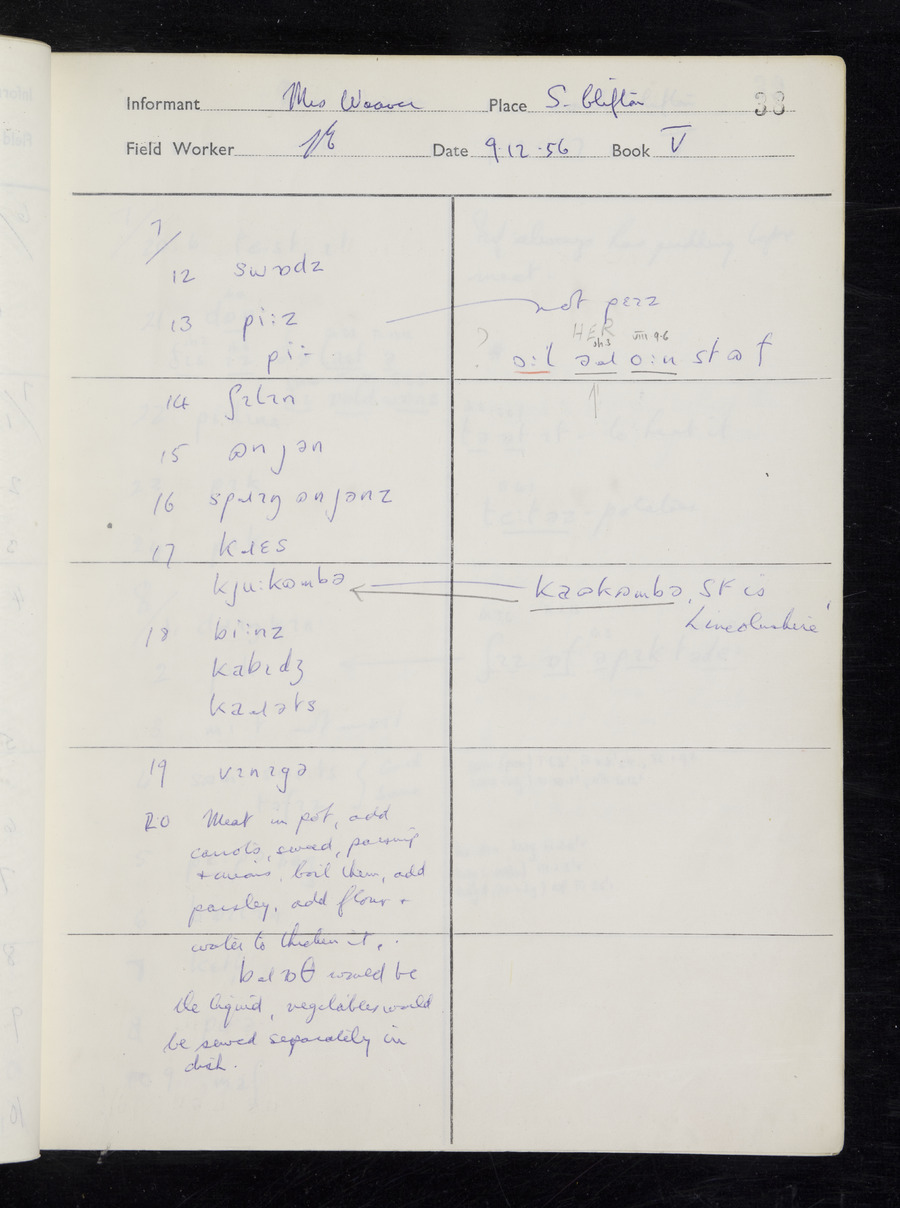 Informant Mrs Weaver Place S. Clifton 33
Field Worker Date 9.12.56 Book V
7/
12 swɒdz
13 pi:z not pɛɪz
pi:
HER
sh.s VIII 9.6
? ɔ:l əɹ o:n stɷf
14 ʃalɪn
15 ɷnjən
16 spɹɪŋ ɷnjənz
17 kɹɛs
kju:kɷmbə kaɷkɷmbə, SF is
Lincolnshire'
18 bi:nz
kabɪdʒ
kaɹəts
19 vɪnɪgə
20 Meat in pot, add
carrots, swed, parsnip
+ onions, boil them, add
parsley, add flour +
water to thicken it.
bɹɒθ would be
the liquid, vegetables would
be served separately in
dish.